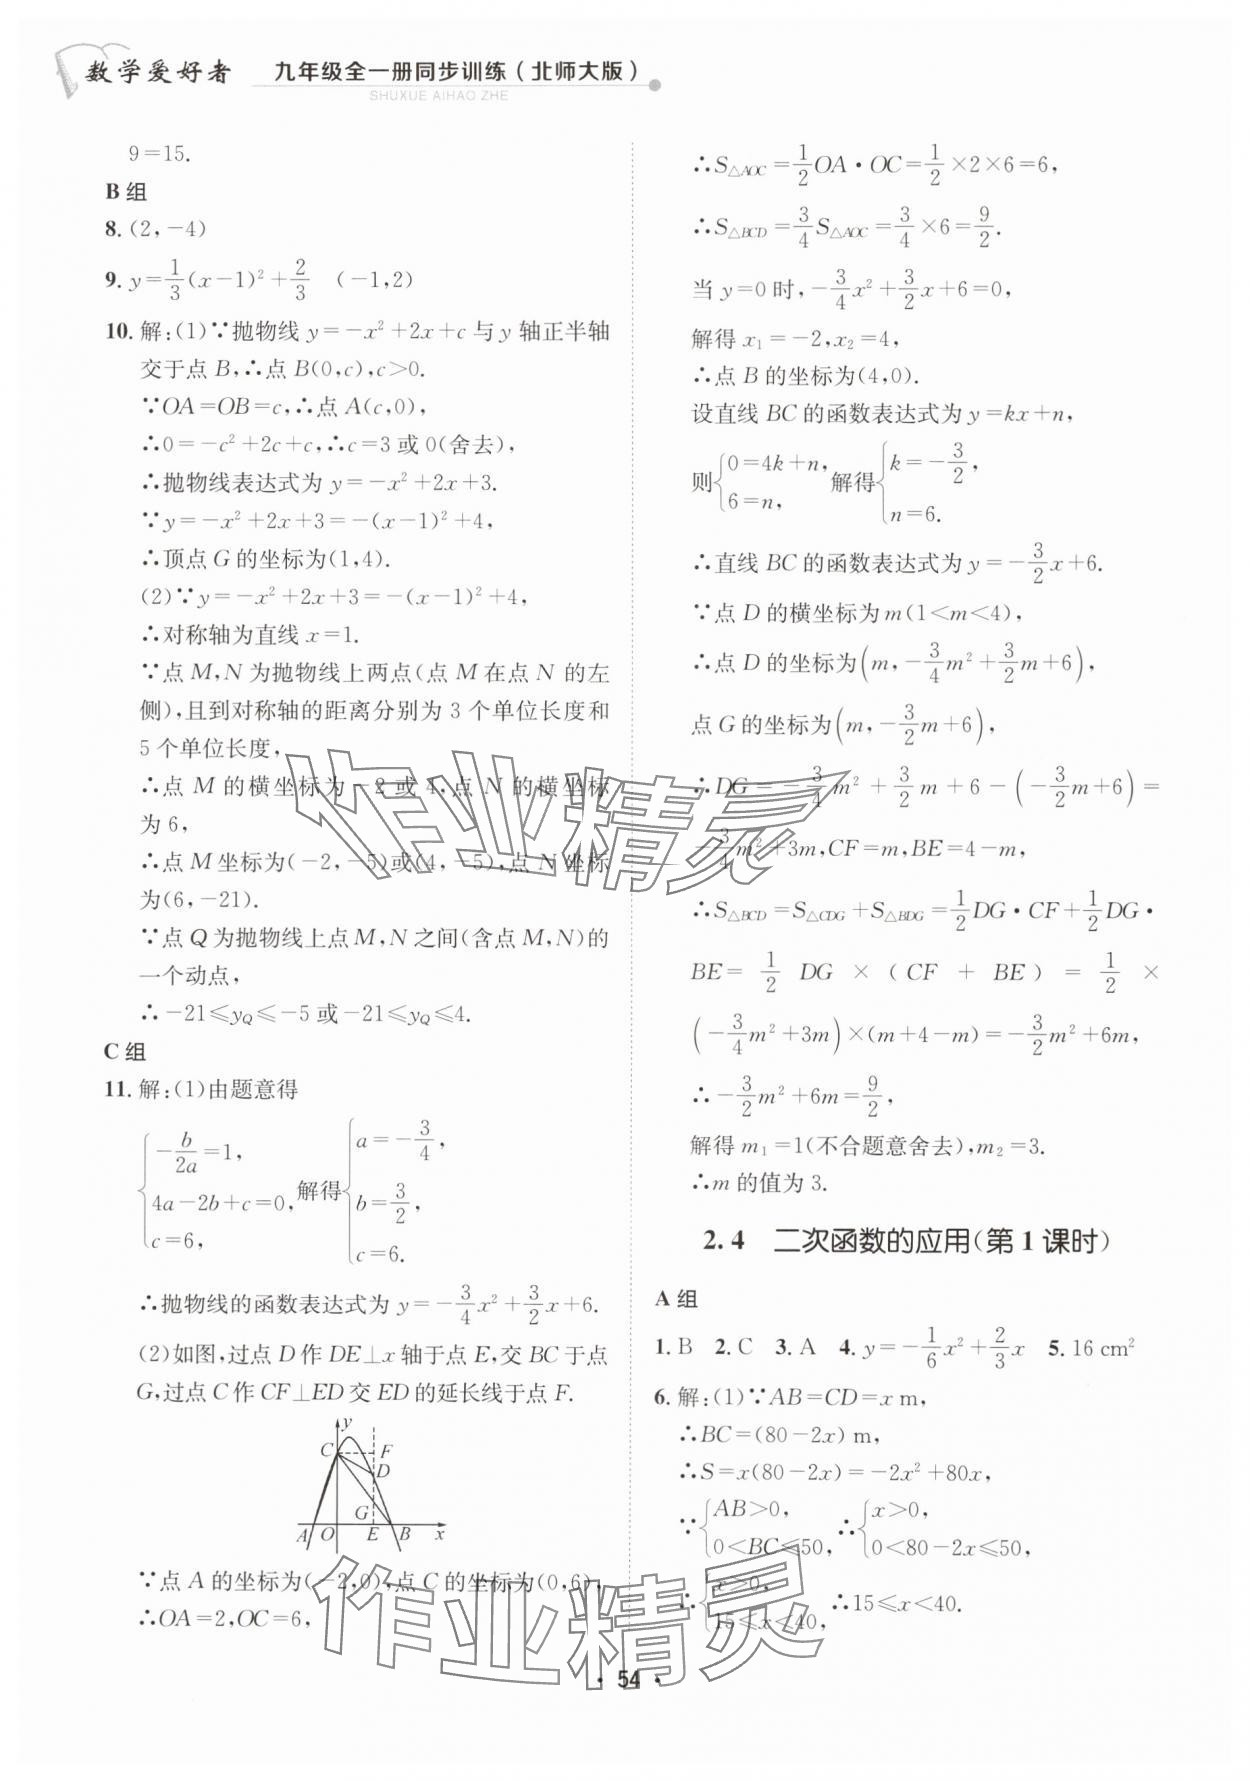 数学爱好者 九年级全一册同步训练(北师大版)
SHUXUE AIHAO ZHE
9=15.
B 组
8. (2,-4)
9. y=1/3(x-1)²+2/3 (-1,2)
10. 解:(1)∵抛物线 y=-x²+2x+c 与 y 轴正半轴
交于点 B,∴点 B(0,c),c>0.
∵OA=OB=c,∴点 A(c,0),
∴0=-c²+2c+c,∴c=3 或 0(舍去),
∴抛物线表达式为 y=-x²+2x+3.
∵y=-x²+2x+3=-(x-1)²+4,
∴顶点 G 的坐标为(1,4).
(2)∵y=-x²+2x+3=-(x-1)²+4,
∴对称轴为直线 x=1.
∵点 M,N 为抛物线上两点(点 M 在点 N 的左
侧),且到对称轴的距离分别为 3 个单位长度和
5 个单位长度,
∴点 M 的横坐标为-2 或 4,点 N 的横坐标
为 6,
∴点 M 坐标为(-2,-5)或(4,-5),点 N 坐标
为(6,-21).
∵点 Q 为抛物线上点 M,N 之间(含点 M,N)的
一个动点,
∴-21≤y_Q≤-5 或-21≤y_Q≤4.
C 组
11. 解:(1)由题意得
{-b/2a=1, 4a-2b+c=0, c=6, 解得{a=-3/4, b=3/2, c=6,
∴抛物线的函数表达式为 y=-3/4x²+3/2x+6.
(2)如图,过点 D 作 DE⊥x 轴于点 E,交 BC 于点
G,过点 C 作 CF⊥ED 交 ED 的延长线于点 F.
y
C F
D
G
A O E B x
∵点 A 的坐标为(-2,0),点 C 的坐标为(0,6),
∴OA=2,OC=6,
∴S△AOC=1/2OA·OC=1/2×2×6=6,
∴S△BCD=3/4S△AOC=3/4×6=9/2.
当 y=0 时,-3/4x²+3/2x+6=0,
解得 x₁=-2,x₂=4,
∴点 B 的坐标为(4,0).
设直线 BC 的函数表达式为 y=kx+n,
则{0=4k+n, 6=n, 解得{k=-3/2, n=6.
∴直线 BC 的函数表达式为 y=-3/2x+6.
∵点 D 的横坐标为 m(1<m<4),
∴点 D 的坐标为(m,-3/4m²+3/2m+6),
点 G 的坐标为(m,-3/2m+6),
∴DG=-3/4m²+3/2m+6-(-3/2m+6)=
-3/4m²+3m,CF=m,BE=4-m,
∴S△BCD=S△CDG+S△BDG=1/2DG·CF+1/2DG·
BE=1/2 DG×(CF+BE)=1/2×
(-3/4m²+3m)×(m+4-m)=-3/2m²+6m,
∴-3/2m²+6m=9/2,
解得 m₁=1(不合题意舍去),m₂=3.
∴m 的值为 3.
2.4 二次函数的应用(第 1 课时)
A 组
1. B 2. C 3. A 4. y=-1/6x²+2/3x 5. 16 cm²
6. 解:(1)∵AB=CD=x m,
∴BC=(80-2x) m,
∴S=x(80-2x)=-2x²+80x,
∵{AB>0, 0<BC≤50, ∴{x>0, 0<80-2x≤50,
∴{x>0, 15≤x<40, ∴15≤x<40.
作业精灵
作业精灵
· 54 ·